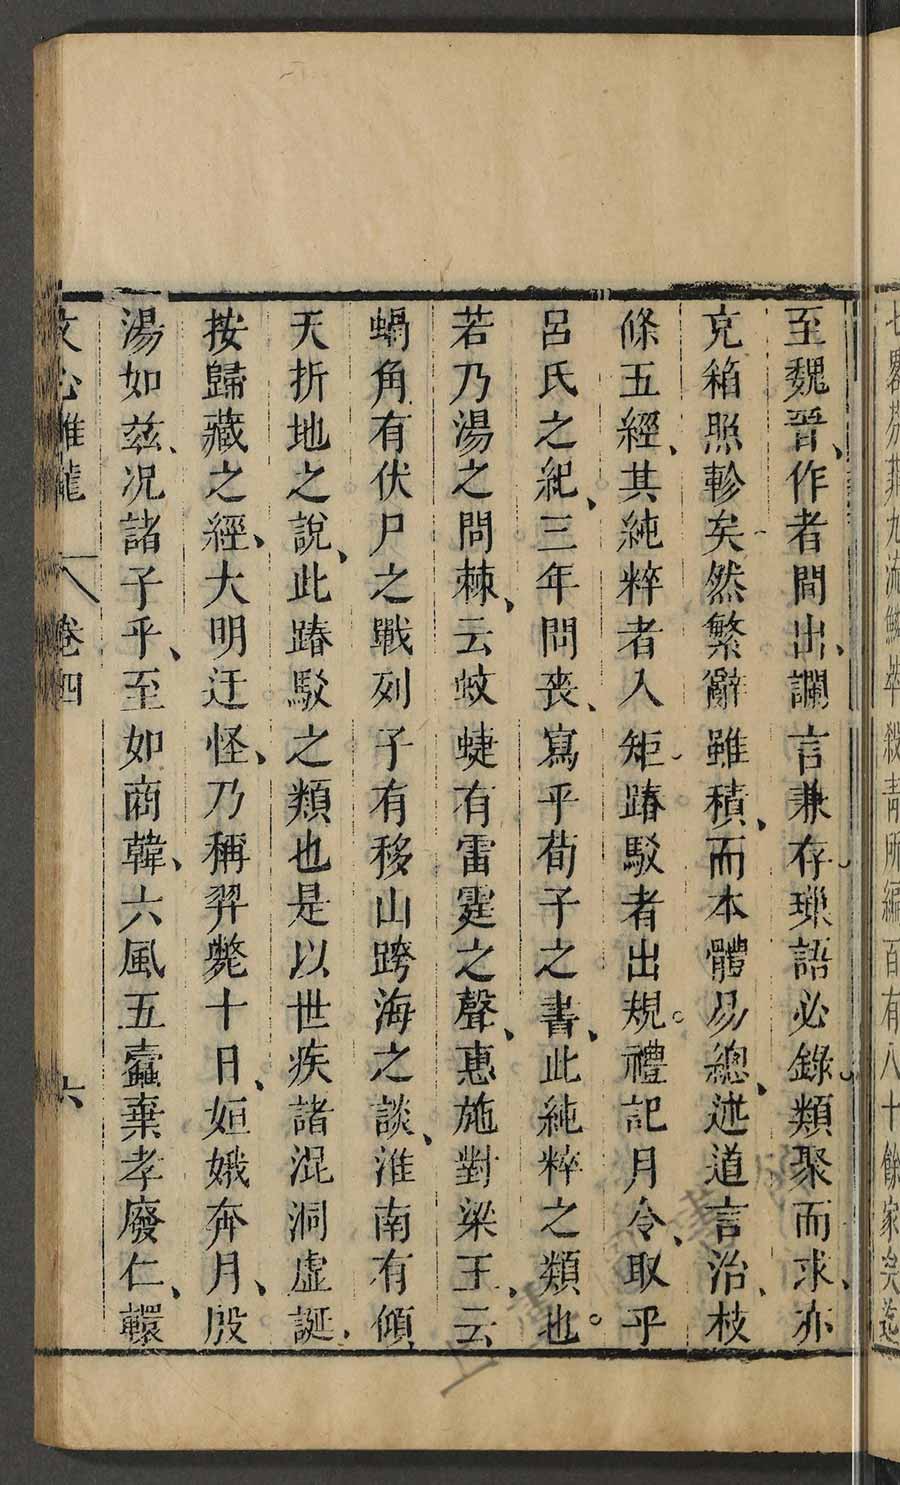 七畧芬菲九流鱗萃殺青所編百有八十餘家矣迄
至魏晉作者間出讕言兼存璅語必錄類聚而求亦
充箱照軫矣然繁辭雖積而本體易總述道言治枝
條五經其純粹者入矩踳駁者出規禮記月令取乎
呂氏之紀三年問喪寫乎荀子之書此純粹之類也
若乃湯之問棘云蚊蜨有雷霆之聲惠施對梁王云
蝸角有伏尸之戰列子有移山跨海之談淮南有傾
天折地之說此踳駁之類也是以世疾諸混洞虛誕
按歸藏之經大明迂怪乃稱羿斃十日姮娥奔月殷
湯如兹况諸子乎至如商韓六風五蠹棄孝廢仁轘
文心雕龍 卷四 六